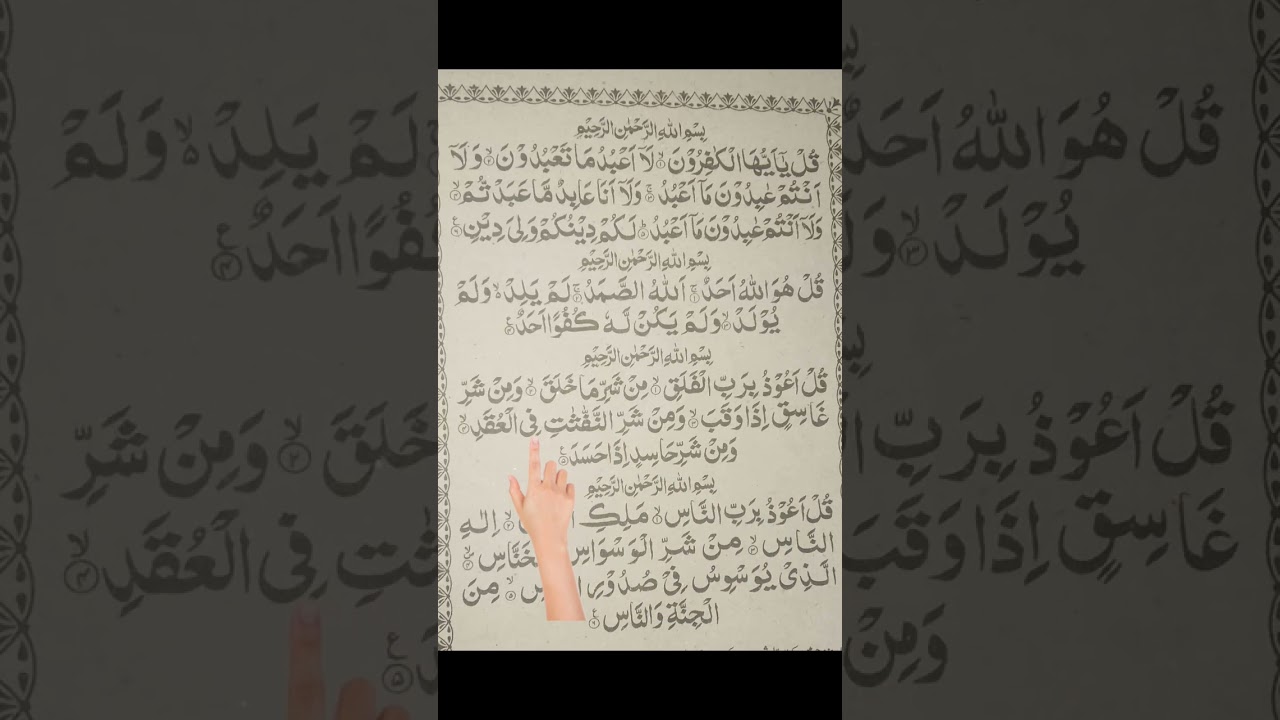 بِسْمِ اللهِ الرَّحْمٰنِ الرَّحِيْمِ
قُلْ يٰٓاَيُّهَا الْكٰفِرُوْنَ ۙ۱ لَاۤ اَعْبُدُ مَا تَعْبُدُوْنَ ۙ۲ وَلَاۤ
اَنْتُمْ عٰبِدُوْنَ مَاۤ اَعْبُدُ ۚ۳ وَلَاۤ اَنَا عَابِدٌ مَّا عَبَدْتُّمْ ۙ۴
وَلَاۤ اَنْتُمْ عٰبِدُوْنَ مَاۤ اَعْبُدُ ؕ۵ لَكُمْ دِيْنُكُمْ وَلِىَ دِيْنِ ۶
بِسْمِ اللهِ الرَّحْمٰنِ الرَّحِيْمِ
قُلْ هُوَ اللهُ اَحَدٌ ۚ۱ اَللهُ الصَّمَدُ ۚ۲ لَمْ يَلِدْ ۙ وَلَمْ
يُوْلَدْ ۙ۳ وَلَمْ يَكُنْ لَّهٗ كُفُوًا اَحَدٌ ۴
بِسْمِ اللهِ الرَّحْمٰنِ الرَّحِيْمِ
قُلْ اَعُوْذُ بِرَبِّ الْفَلَقِ ۙ۱ مِنْ شَرِّ مَا خَلَقَ ۙ۲ وَمِنْ شَرِّ
غَاسِقٍ اِذَا وَقَبَ ۙ۳ وَمِنْ شَرِّ النَّفّٰثٰتِ فِى الْعُقَدِ ۙ۴
وَمِنْ شَرِّ حَاسِدٍ اِذَا حَسَدَ ۵
بِسْمِ اللهِ الرَّحْمٰنِ الرَّحِيْمِ
قُلْ اَعُوْذُ بِرَبِّ النَّاسِ ۙ۱ مَلِكِ ۙ۲ اِلٰهِ
النَّاسِ ۙ۳ مِنْ شَرِّ الْوَسْوَاسِ الْخَنَّاسِ ۙ۴
الَّذِىْ يُوَسْوِسُ فِىْ صُدُوْرِ ۙ۵ مِنَ
الْجِنَّةِ وَالنَّاسِ ۶